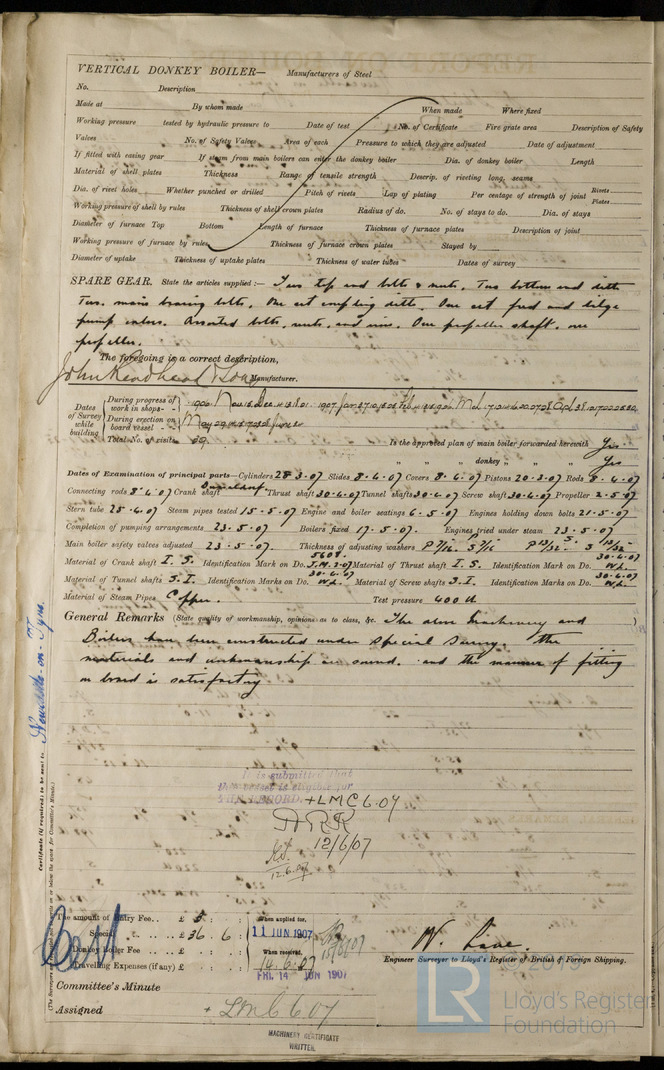 VERTICAL DONKEY BOILER— Manufacturers of Steel
No. Description
Made at By whom made When made Where fixed
Working pressure tested by hydraulic pressure to Date of test No. of Certificate Fire grate area Description of Safety
Valves No. of Safety Valves Area of each Pressure to which they are adjusted Date of adjustment
If fitted with easing gear If steam from main boilers can enter the donkey boiler Dia. of donkey boiler Length
Material of shell plates Thickness Range of tensile strength Descrip. of riveting long. seams
Dia. of rivet holes Whether punched or drilled Pitch of rivets Lap of plating Per centage of strength of joint Rivets Plates
Working pressure of shell by rules Thickness of shell crown plates Radius of do. No. of stays to do. Dia. of stays
Diameter of furnace Top Bottom Length of furnace Thickness of furnace plates Description of joint
Working pressure of furnace by rules Thickness of furnace crown plates Stayed by
Diameter of uptake Thickness of uptake plates Thickness of water tubes Dates of survey
SPARE GEAR. State the articles supplied:— Two top end bolts & nuts, Two bottom end ditto
Two main bearing bolts, One set coupling ditto, One set feed and bilge
pump valves. Assorted bolts, nuts, and iron. One propeller shaft, one
propeller.
The foregoing is a correct description,
John Readhead & Sons Manufacturer.
Dates of Survey while building
During progress of work in shops - 1906 Nov 1907 Jan Feb
During erection on board vessel - May June
Total No. of visits 39 Is the approved plan of main boiler forwarded herewith Yes
" " " donkey " " " Yes
Dates of Examination of principal parts—Cylinders 28.3.07 Slides 8.4.07 Covers 8.4.07 Pistons 20.3.07 Rods 8.4.07
Connecting rods 8.4.07 Crank shaft Thrust shaft 30.4.07 Tunnel shafts 30.4.07 Screw shaft 30.4.07 Propeller 2.5.07
Stern tube 25.4.07 Steam pipes tested 15.5.07 Engine and boiler seatings 6.5.07 Engines holding down bolts 21.5.07
Completion of pumping arrangements 23.5.07 Boilers fixed 17.5.07 Engines tried under steam 23.5.07
Main boiler safety valves adjusted 23.5.07 Thickness of adjusting washers
Material of Crank shaft I.S. Identification Mark on Do. Material of Thrust shaft I.S. Identification Mark on Do. 30.4.07 W.L.
Material of Tunnel shafts S.I. Identification Marks on Do. 30.4.07 W.L. Material of Screw shafts S.I. Identification Marks on Do. 30.4.07 W.L.
Material of Steam Pipes Copper. Test pressure 400 lb
General Remarks (State quality of workmanship, opinions as to class, &c. The above Machinery and
Boilers have been constructed under special survey. the
materials and workmanship are sound. and the manner of fitting
on board is satisfactory
Newcastle-on-Tyne.
Certificate (if required) to be sent to
It is submitted that
this vessel is eligible for
THE RECORD. + LMC 6.07
12/6/07
12.6.07
The amount of Entry Fee.. £ 5 : :
Special £ 36 . 6 :
Donkey Boiler Fee £ : :
Travelling Expenses (if any) £ : :
When applied for,
11 JUN 1907
When received,
14.6.07
FRI. 14 JUN 1907
Engineer Surveyor to Lloyd's Register of British & Foreign Shipping.
Committee's Minute
Assigned + LMC 6.07
MACHINERY CERTIFICATE
WRITTEN.
LR
Lloyd's Register
Foundation